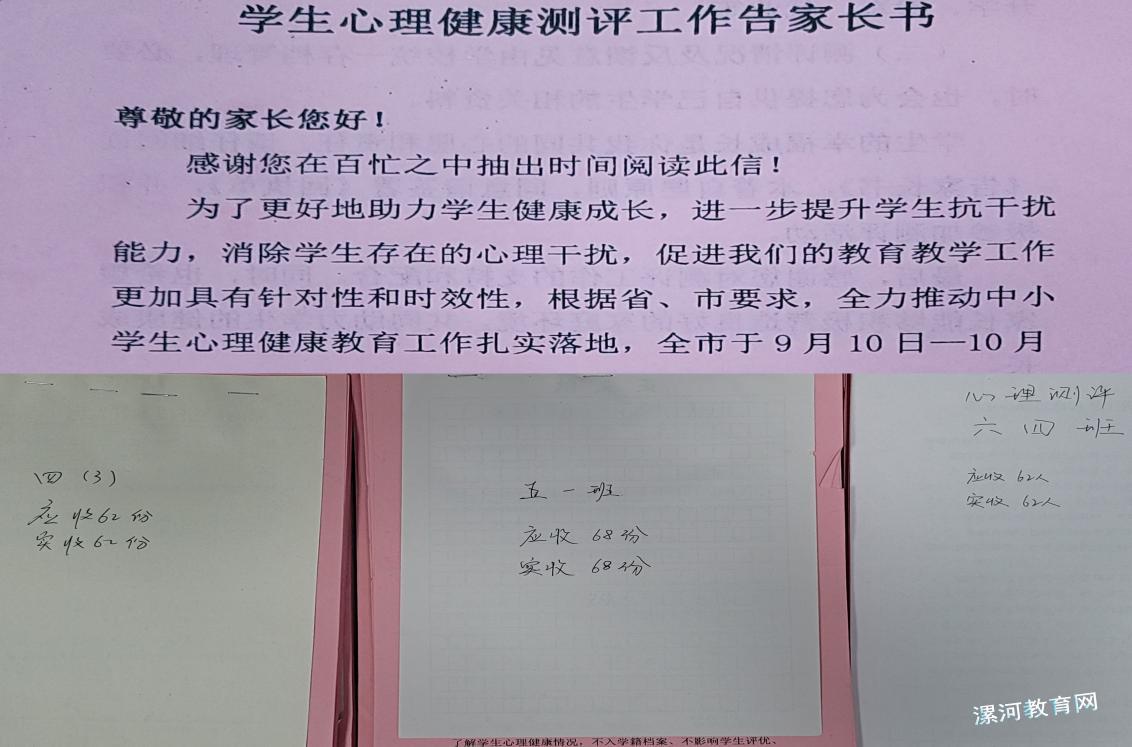 学生心理健康测评工作告家长书
尊敬的家长您好！
感谢您在百忙之中抽出时间阅读此信！
为了更好地助力学生健康成长，进一步提升学生抗干扰
能力，消除学生存在的心理干扰，促进我们的教育教学工作
更加具有针对性和时效性，根据省、市要求，全力推动中小
学生心理健康教育工作扎实落地，全市于9月10日—10月
四（3）
应收62份
实收62份
五一班
应收 68份
实收 68份
心理测评
六四班
应收 62人
实收 62人
了解学生心理健康情况，不入学籍档案、不影响学生评优、
漯河教育网